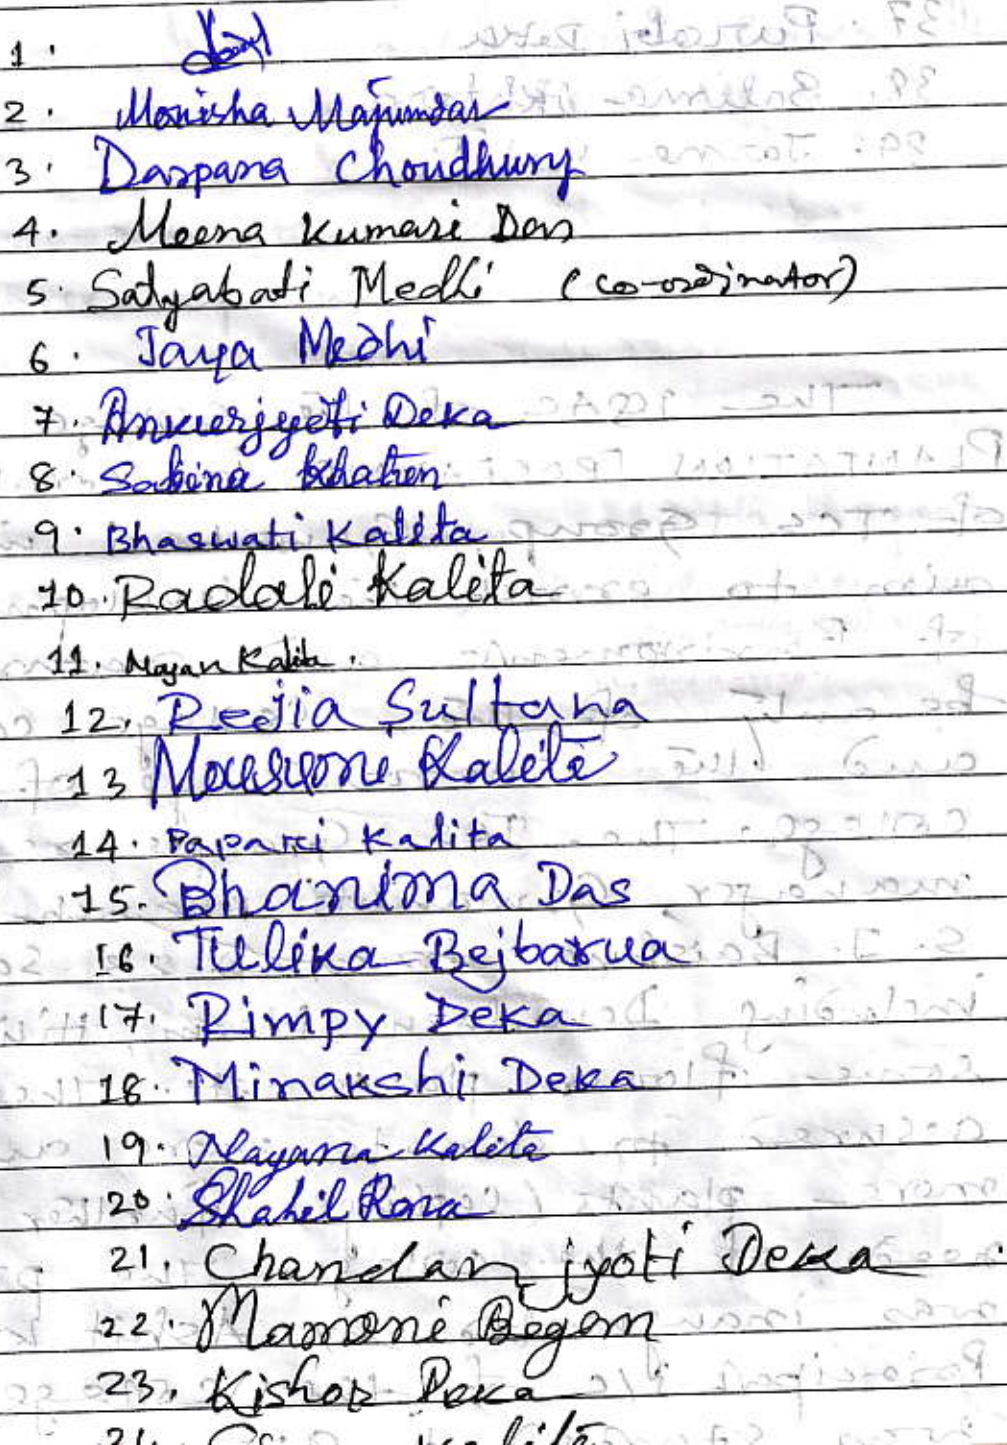 1.
2. Monisha Majumdar
3. Darpana Choudhury
4. Meena Kumari Das
5. Satyabati Medhi (Co-ordinator)
6. Jaya Medhi
7. Ankurjyoti Deka
8. Sabina Khatun
9. Bhaswati Kalita
10. Radali Kalita
11. Nayan Kalita.
12. Rejia Sultana
13 Mousumi Kalita
14. Papari Kalita
15. Bhanima Das
16. Tulika Bejbarua
17. Rimpy Deka
18. Minakshi Deka
19. Nayana Kalita
20. Shahil Rona
21. Chandan jyoti Deka
22. Mamoni Begom
23. Kishor Deka
24. Kalita